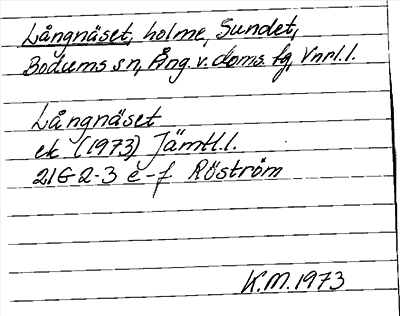 Långnäset, holme, Sundet,
Bodums sn, Ång. v. doms. fg, Vnrl. l.
Långnäset
ek (1973) Jämtl. l.
21G 2-3 e-f Röström
K.M. 1973